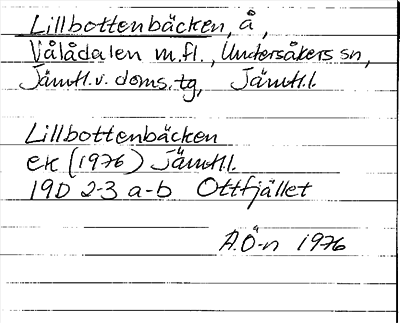 Lillbottenbäcken, å,
Vålådalen m.fl., Undersåkers sn,
Jämtl.v. doms. tg, Jämtl.l.
Lillbottenbäcken
ek (1976) Jämtl.l.
19D 2-3 a-b Ottfjället
A.Ö-n 1976